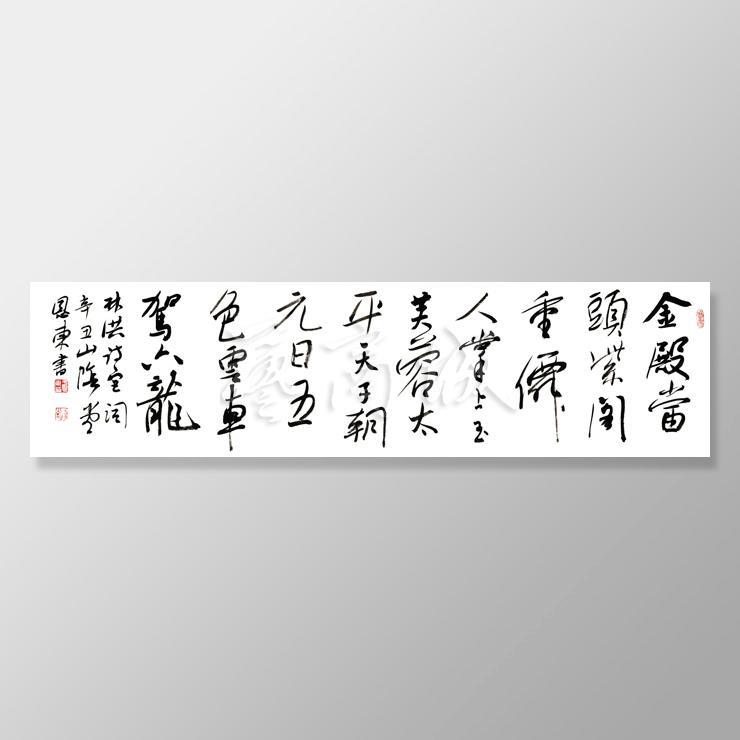 金殿當
頭紫閣
重僊
人掌上玉
芙蓉太
平天子朝
元日五
色雲車
駕六龍
林洪诗宫词
辛丑山陰
東書
藝商城